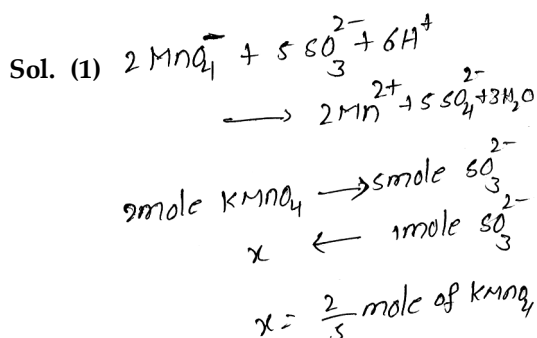 Sol. (1) 2 MnO₄⁻ + 5 SO₃²⁻ + 6H⁺
⟶ 2Mn²⁺ + 5 SO₄²⁻ + 3H₂O
2mole KMnO₄ ⟶ 5mole SO₃²⁻
x ← 1mole SO₃²⁻
x = 2/5 mole of KMnO₄